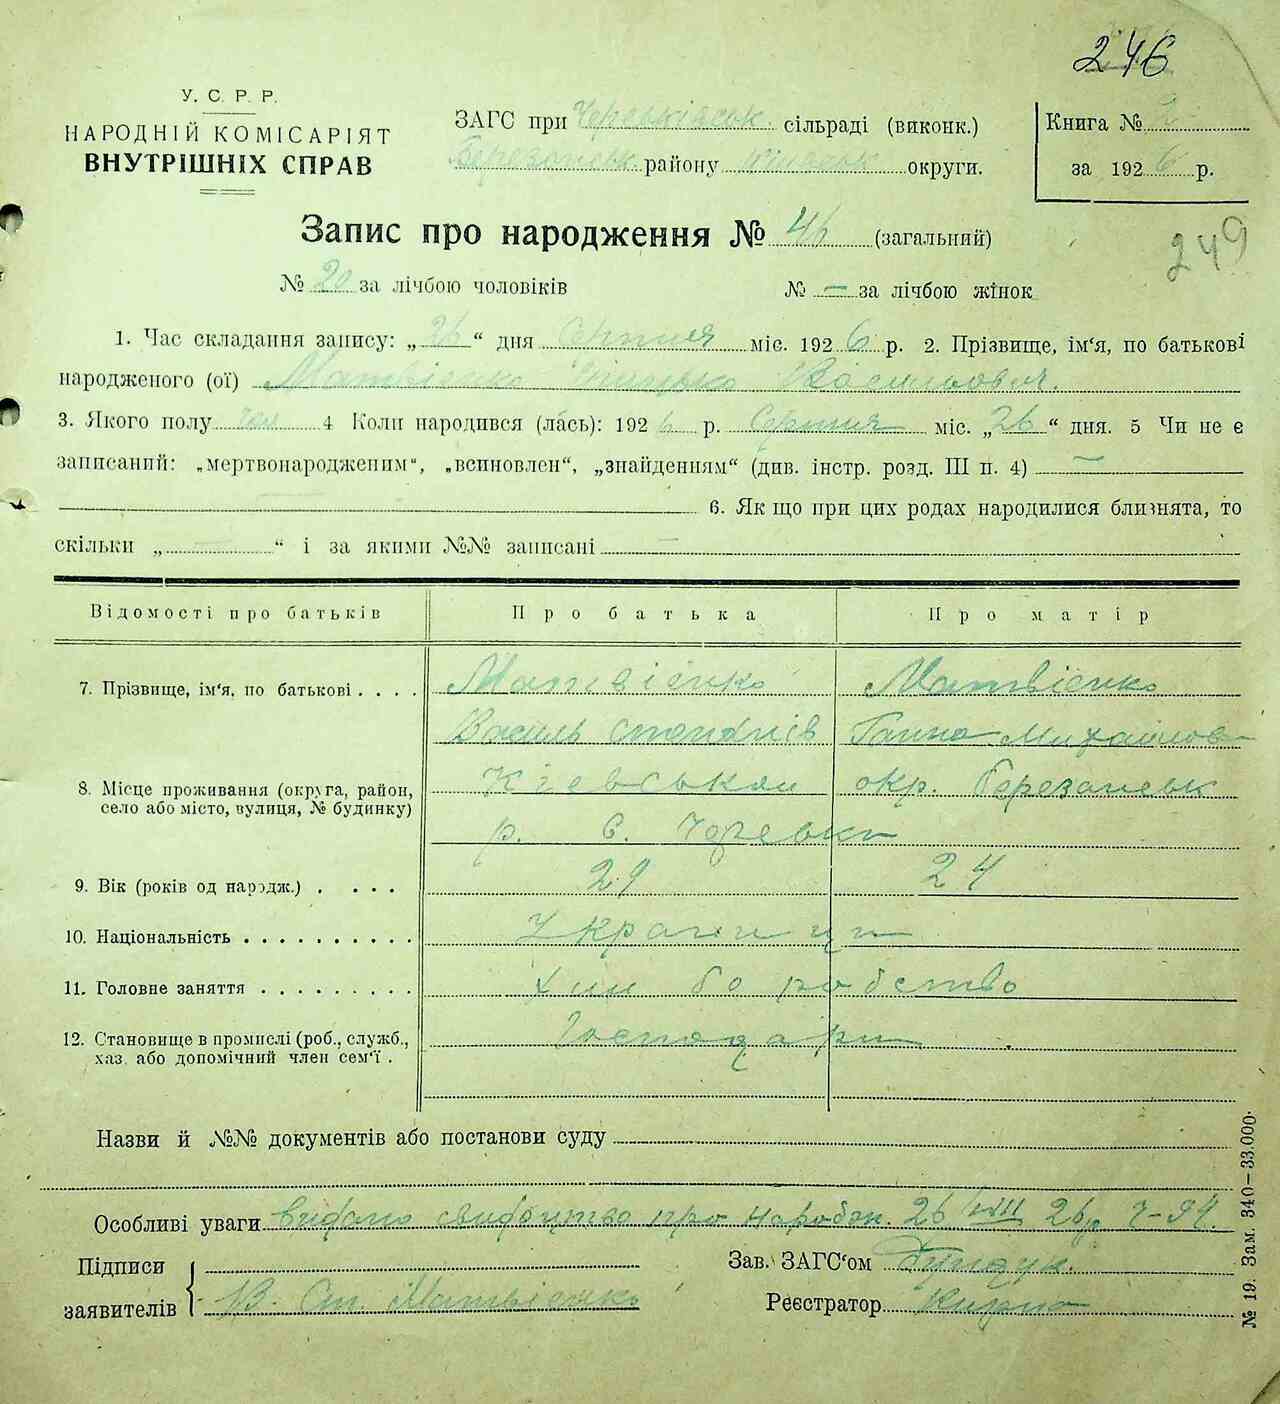 246
У. С. Р. Р.
НАРОДНІЙ КОМІСАРІЯТ
ВНУТРІШНІХ СПРАВ
ЗАГС при сільраді (виконк.)
Березанськ району округи.
Книга №
за 1926 р.
Запис про народження № 46 (загальний)
249
№ 20 за лічбою чоловіків № — за лічбою жінок
1. Час складання запису: „26“ дня Серпня міс. 1926 р. 2. Прізвище, ім‘я, по батькові
народженого (ої) Матвієнко Васильович.
3. Якого полу чол 4 Коли народився (лась): 1926 р. Серпня міс. „26“ дня. 5 Чи не є
записаний: „мертвонародженим“, „всиновлен“, „знайденням“ (див. інстр. розд. III п. 4) —
6. Як що при цих родах народилися близнята, то
скільки „ — “ і за якими №№ записані —
Відомості про батьків Про батька Про матір
7. Прізвище, ім‘я, по батькові . . . . Матвієнко Матвієнко
Василь Ганна Михайлов
8. Місце проживання (округа, район, село або місто, вулиця, № будинку) Київськая окр. Березанськ
р. с.
9. Вік (років од народж.) . . . . 29 24
10. Національність . . . . . . . . . . Українці
11. Головне заняття . . . . . . . . . хлиборобство
12. Становище в промислі (роб., служб., хаз. або допомічний член сем‘ї . Господарі
Назви й №№ документів або постанови суду
Особливі уваги видано свидоцтво про народж. 26/VIII 26 р.
Підписи
заявителів В. Ст. Матвієнко
Зав. ЗАГС‘ом
Реєстратор
№ 19. Зам. 340–33.000.